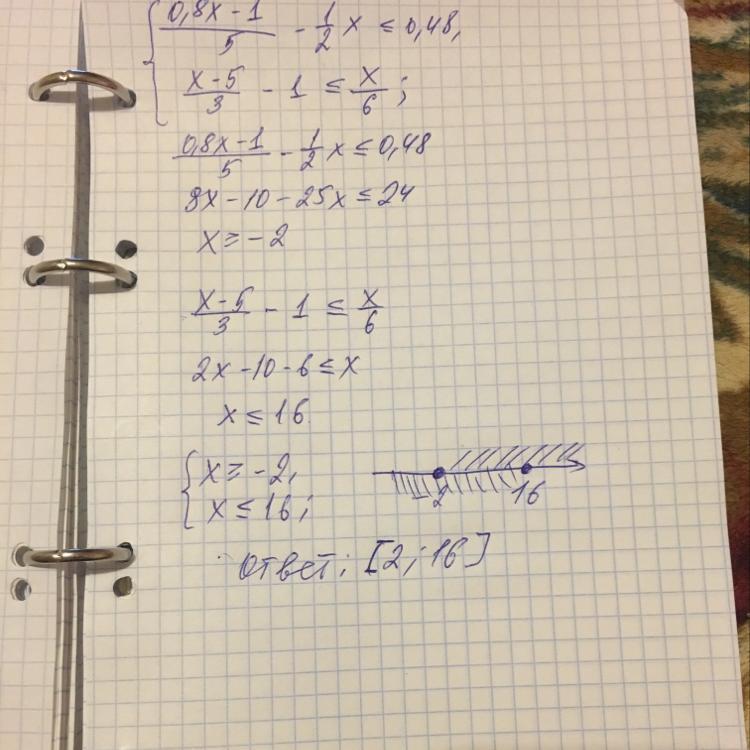 { (0,8x-1)/5 - 1/2 x ≤ 0,48,
(x-5)/3 - 1 ≤ x/6;
(0,8x-1)/5 - 1/2 x ≤ 0,48
8x-10-25x ≤ 24
x ≥ -2
(x-5)/3 - 1 ≤ x/6
2x-10-6 ≤ x
x ≤ 16
{ x ≥ -2,
x ≤ 16;
2 16
Ответ: [2; 16]